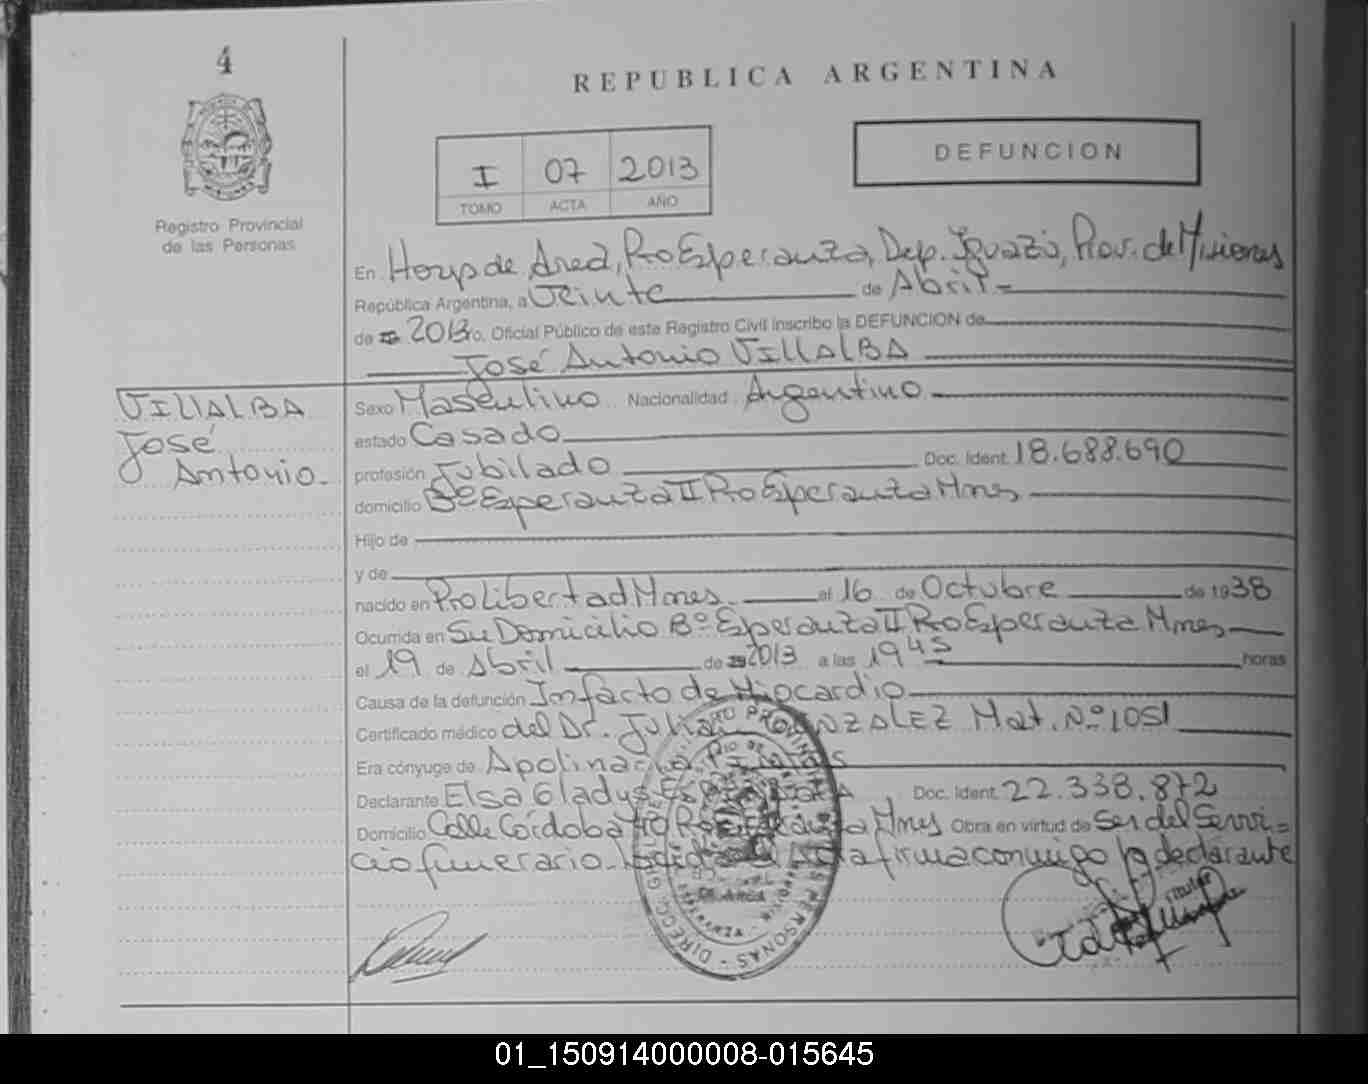 4
REPUBLICA ARGENTINA
Registro Provincial
de las Personas
I 07 2013
TOMO ACTA AÑO
DEFUNCION
En Hosp de Area, Pto Esperanza, Dep. Iguazú, Prov. de Misiones
República Argentina, a Veinte de Abril
de 2013 yo, Oficial Público de este Registro Civil inscribo la DEFUNCION de
José Antonio VILLALBA
VILLALBA
José
Antonio.-
Sexo Masculino Nacionalidad Argentino
estado Casado
profesión Jubilado Doc. Ident. 18.688.690
domicilio Bº Esperanza II Pto Esperanza Mnes
Hijo de
y de
nacido en Pto Libertad Mnes. el 16 de Octubre de 1938
Ocurrida en Su Domicilio Bº Esperanza II Pto Esperanza Mnes
el 19 de Abril de 2013 a las 19 45 horas
Causa de la defunción Infarto de Miocardio
Certificado médico del Dr. Julian GONZALEZ Mat. Nº 1051
Era cónyuge de Apolinaria
Declarante Elsa Gladys Doc. Ident. 22.338.872
Domicilio Calle Córdoba Pto Esperanza Mnes Obra en virtud de Ser del Servi=
cio funerario firma conmigo la declarante
DIRECC. GRAL. DEL REGISTRO PROVINCIAL DE LAS PERSONAS
Titular
01_150914000008-015645